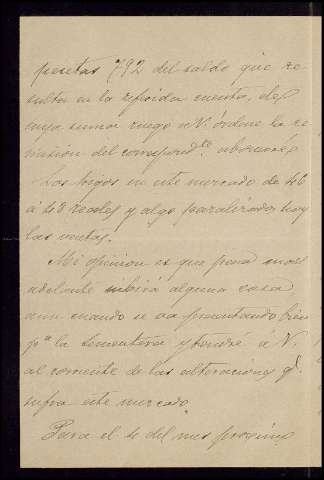 pesetas 792 del saldo que re
sulta en la referida cuenta, de
cuya suma ruego a V. órdene la re
mision del correspond.te abonaré
Los trigos en este mercado de 46
á 48 reales y algo paralizadas hoy
las ventas.
Mi opinion es que para mas
adelante subirá alguna cosa
aun cuando se va presentando bien
p.a la sementera y tendre á V.
al corriente de las alteraciones q.e
sufra este mercado.
Para el 4 del mes proximo